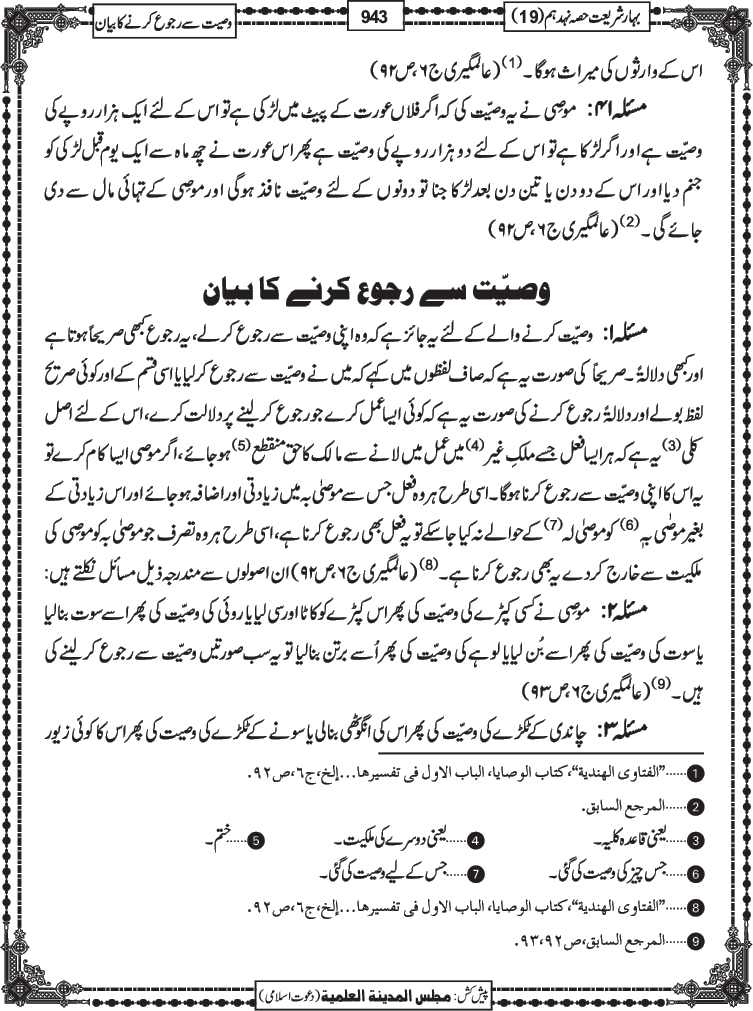 بہارِ شریعت حصہ نہدہم (19)
943
وصیت سے رجوع کرنے کا بیان
اس کے وارثوں کی میراث ہوگا۔(1) (عالمگیری ج۶،ص۹۲)
مسئلہ ۴۱: موصی نے یہ وصیّت کی کہ اگر فلاں عورت کے پیٹ میں لڑکی ہے تو اس کے لئے ایک ہزار روپے کی
وصیّت ہے اور اگر لڑکا ہے تو اس کے لئے دو ہزار روپے کی وصیّت ہے پھر اس عورت نے چھ ماہ سے ایک یوم قبل لڑکی کو
جنم دیا اور اس کے دو دن یا تین دن بعد لڑکا جنا تو دونوں کے لئے وصیّت نافذ ہوگی اور موصی کے تہائی مال سے دی
جائے گی۔(2) (عالمگیری ج۶،ص۹۲)
وصیّت سے رجوع کرنے کا بیان
مسئلہ ۱: وصیّت کرنے والے کے لئے یہ جائز ہے کہ وہ اپنی وصیّت سے رجوع کرلے، یہ رجوع کبھی صریحاً ہوتا ہے
اور کبھی دلالۃً۔ صریحاً کی صورت یہ ہے کہ صاف لفظوں میں کہے کہ میں نے وصیّت سے رجوع کرلیا یا اسی قسم کے اور کوئی صریح
لفظ بولے اور دلالۃً رجوع کرنے کی صورت یہ ہے کہ کوئی ایسا عمل کرے جو رجوع کرلینے پر دلالت کرے، اس کے لئے اصل
کلی(3) یہ ہے کہ ہر ایسا فعل جسے ملکِ غیر(4) میں عمل میں لانے سے مالک کا حق منقطع(5) ہوجائے، اگر موصی ایسا کام کرے تو
یہ اس کا اپنی وصیّت سے رجوع کرنا ہوگا۔ اسی طرح ہر وہ فعل جس سے موصیٰ بہ میں زیادتی اور اضافہ ہوجائے اور اس زیادتی کے
بغیر موصٰی بہٖ(6) کو موصیٰ لہ(7) کے حوالے نہ کیا جاسکے تو یہ فعل بھی رجوع کرنا ہے، اسی طرح ہر وہ تصرف جو موصٰی بہ کو موصی کی
ملکیت سے خارج کردے یہ بھی رجوع کرنا ہے۔(8) (عالمگیری ج۶،ص۹۲) ان اصولوں سے مندرجہ ذیل مسائل نکلتے ہیں:
مسئلہ ۲: موصی نے کسی کپڑے کی وصیّت کی پھر اس کپڑے کو کاٹا اور سی لیا یا روئی کی وصیّت کی پھر اسے سوت بنالیا
یا سوت کی وصیّت کی پھر اسے بُن لیا یا لوہے کی وصیّت کی پھر اُسے برتن بنالیا تو یہ سب صورتیں وصیّت سے رجوع کرلینے کی
ہیں۔(9) (عالمگیری ج۶،ص۹۳)
مسئلہ ۳: چاندی کے ٹکڑے کی وصیّت کی پھر اس کی انگوٹھی بنالی یا سونے کے ٹکڑے کی وصیت کی پھر اس کا کوئی زیور
1……"الفتاوی الھندیۃ"، کتاب الوصایا، الباب الاول فی تفسیرھا…إلخ، ج۶، ص۹۲.
2……المرجع السابق.
3……یعنی قاعدہ کلیہ۔ 4……یعنی دوسرے کی ملکیت۔ 5……ختم۔
6……جس چیز کی وصیت کی گئی۔ 7……جس کے لیے وصیت کی گئی۔
8……"الفتاوی الھندیۃ"، کتاب الوصایا، الباب الاول فی تفسیرھا…إلخ، ج۶، ص۹۲.
9……المرجع السابق، ص۹۲،۹۳.
پیش کش: مجلس المدینۃ العلمیۃ (دعوت اسلامی)